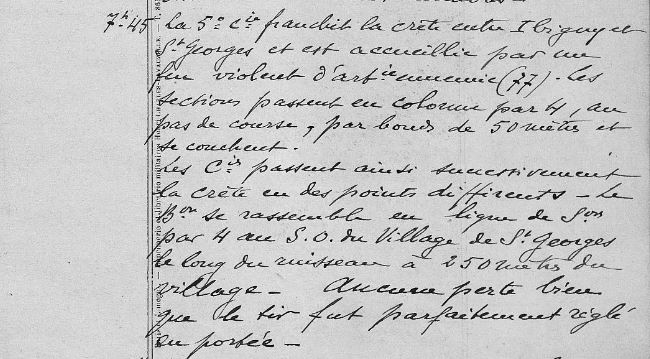 7h45 La 5e Cie franchit la crête entre Ibigny et
St Georges et est accueillie par un
feu violent d'artie ennemie (77). Les
sections passent en colonne par 4, au
pas de course, par bonds de 50 mètres et
se couchent.
Les Cies passent ainsi successivement
la crête en des points différents – Le
Bon se rassemble en ligne de Sons
par 4 au S.O. du Village de St Georges
le long du ruisseau à 250 mètres du
village – Aucune perte bien
que le tir fut parfaitement réglé
en portée –